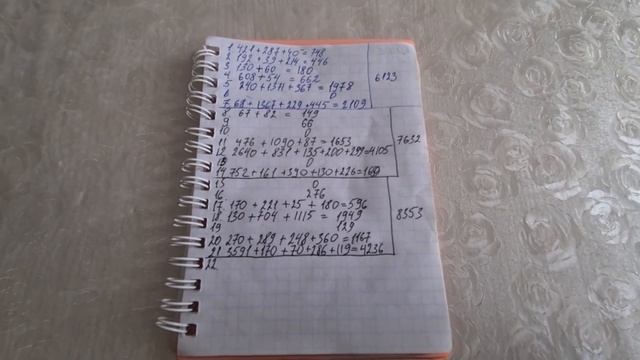 1. 421+287+40=748
2 192+39+214=446
3 130+60 =180
4. 608+54 =662
5 240+1371+367=1978
6 0
7. 68+1367+229+445=2109
6123
8 67+82 = 149
9 66
10 0
11 476+1090+87=1653
12 2640+831+135+200+299=4105
13 0
14 752+161+390+130+226=1659
7632
15 0
16 276
17 170+221+25+180=596
18 130+704+1115=1949
19 129
20 270+289+248+360=1167
21 3591+170+70+286+119=4236
8353
22